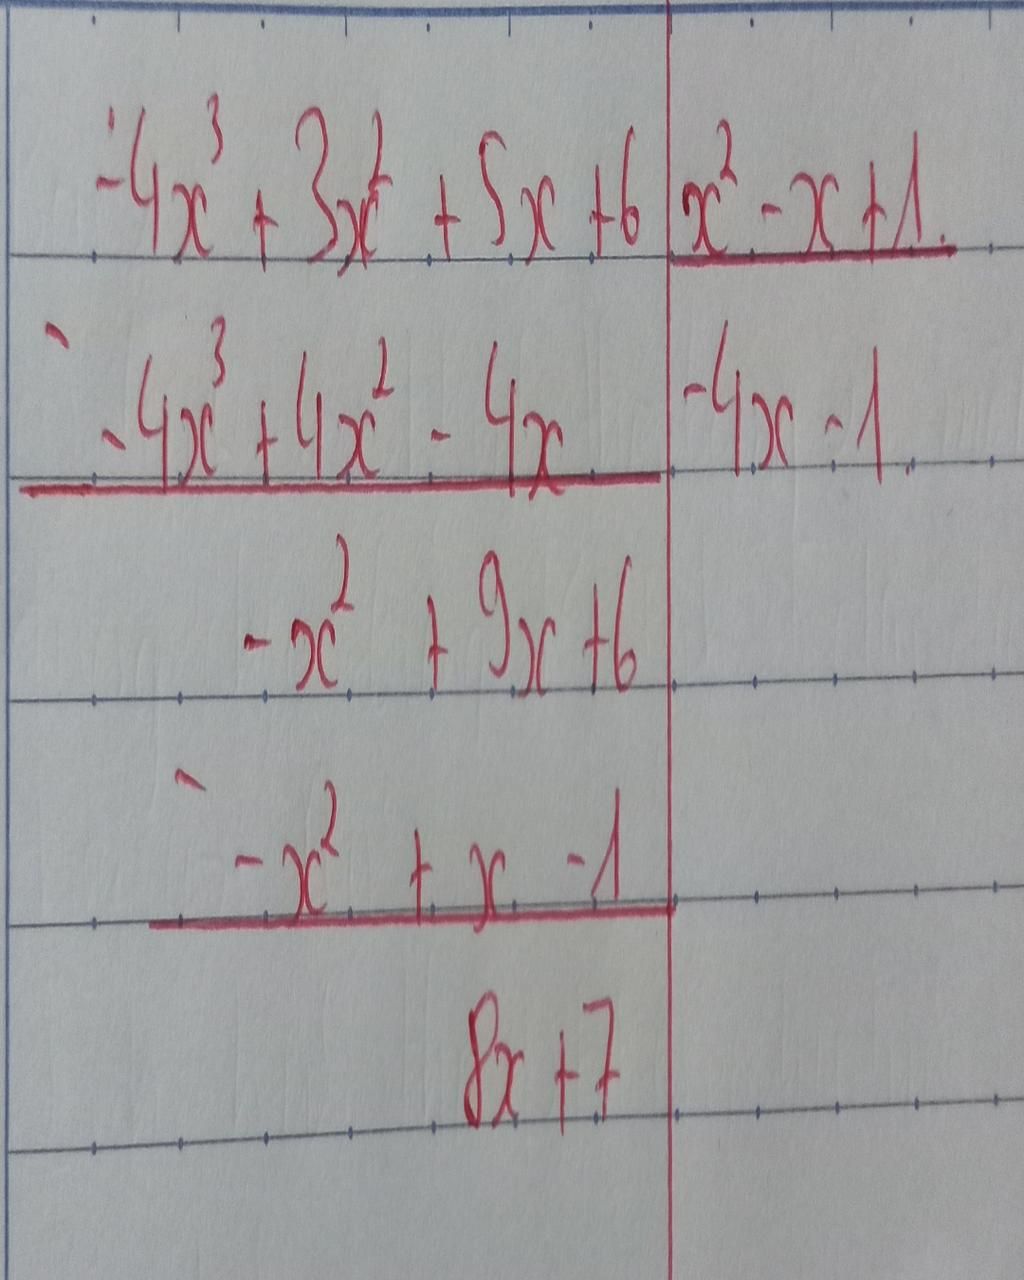 -4x³ + 3x² + 5x + 6 | x² - x + 1
- -4x³ + 4x² - 4x | -4x - 1
-x² + 9x + 6
- -x² + x - 1
8x + 7